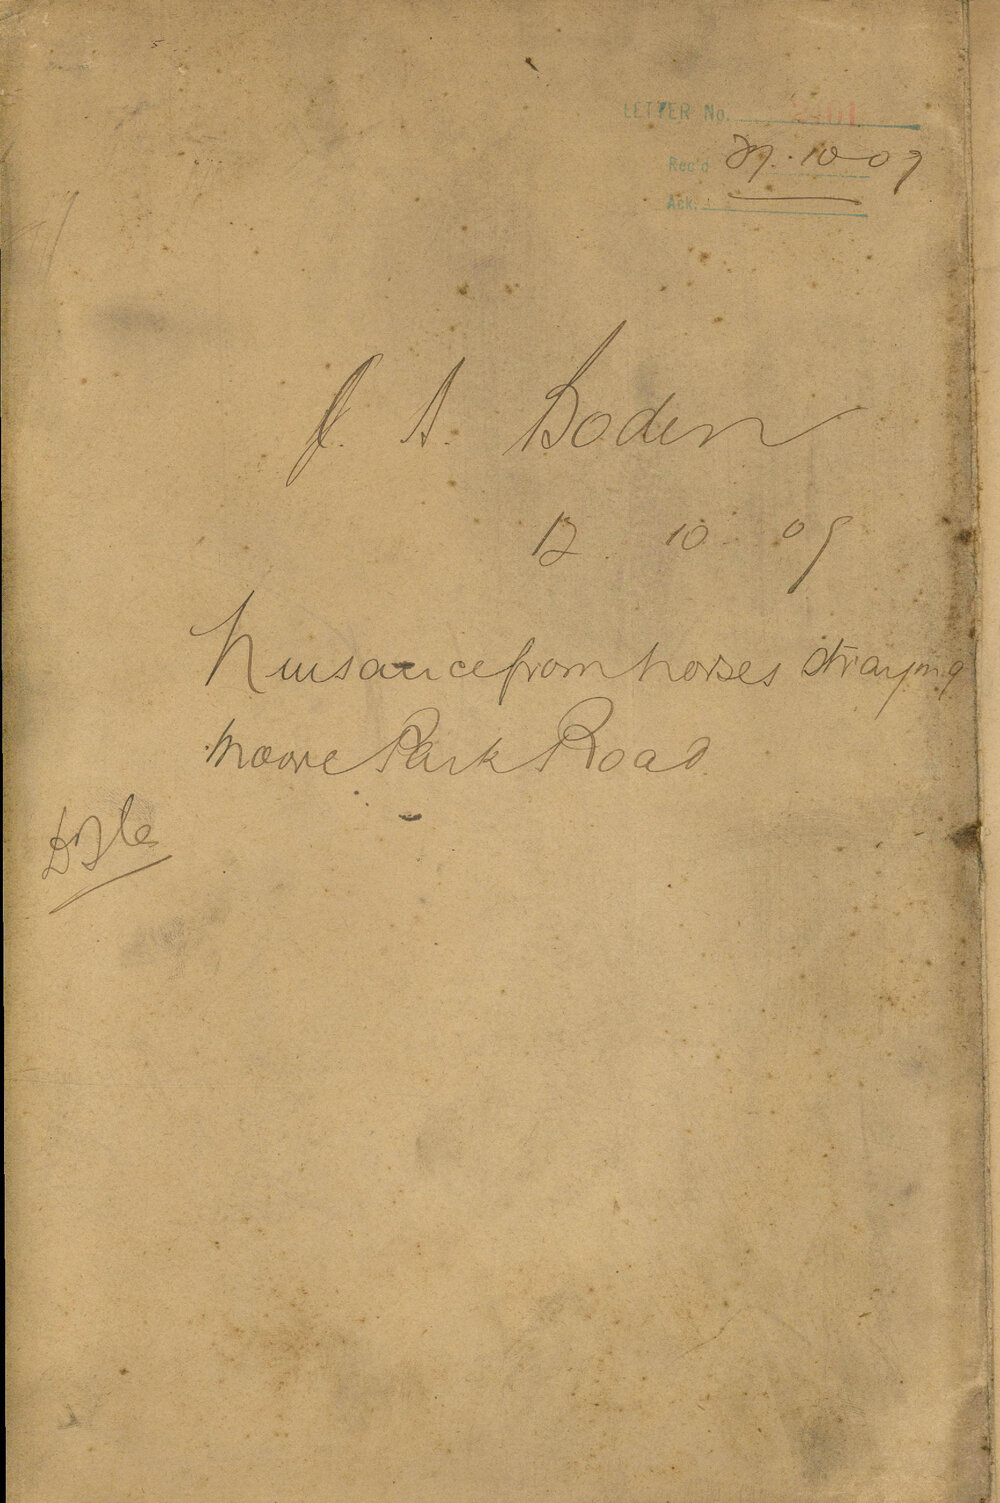 LETTER No.
Rec'd 27.10 09
Ack.
J. A. Boden
12 . 10 . 09
Nuisance from horses straying
Moore Park Road